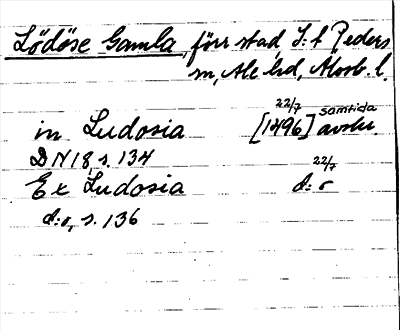 Lödöse Gamla, förr stad, S:t Peders
sn, Ale hd, Älvsb. l.
in Ludosia [1496] 22/7 samtida avskr.
DN 18, s. 134
Ex Ludosia 22/7 d:o
d:o, s. 136